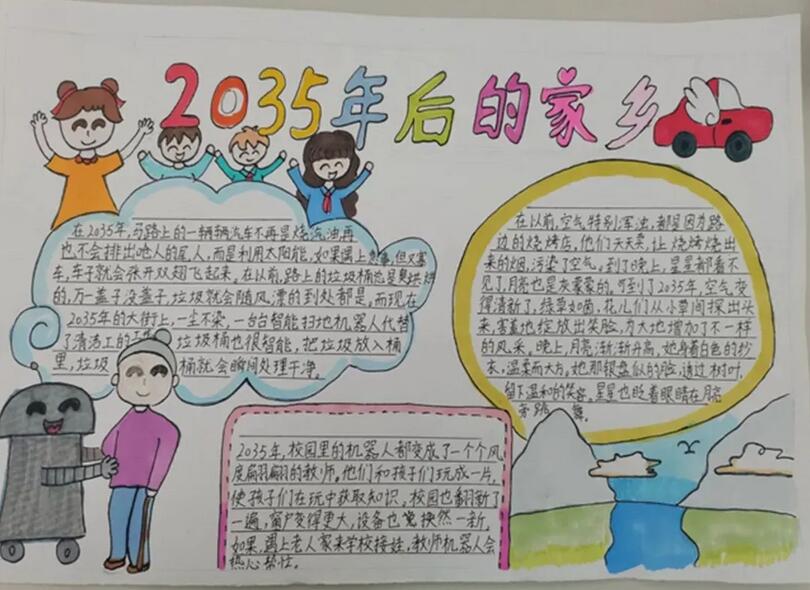 2035年后的家乡
在2035年,马路上的一辆辆汽车不再是烧汽油,再
也不会排出呛人的尾人,而是利用太阳能,如果遇上急事,但又塞
车,车子就会张开双翅飞起来。在以前,路上的垃圾桶总是臭烘烘
的,万一盖子没盖子,垃圾就会随风漂的到处都是,而现在
2035年的大街上,一尘不染,一台台智能扫地机器人代替
了清洁工的 垃圾桶也很智能,把垃圾放入桶
里,垃圾 桶就会瞬间处理干净。
在以前,空气特别浑浊,都是因为路
边的烧烤店,他们天天卖,让烧烤烧出
来的烟,污染了空气。到了晚上,星星都看不
见了,月亮也是灰蒙蒙的。可到了2035年,空气变
得清新了,绿草如茵,花儿们从小草间探出头
来,害羞地绽放出笑脸,为大地增加了不一样
的风采。晚上,月亮渐渐升高,她身着白色的纱
衣,温柔而大方。她那银盘似的脸,透过树叶,
留下温和的笑容。星星也眨着眼睛在月亮
旁跳 舞。
2035年,校园里的机器人都变成了一个个风
度翩翩的教师,他们和孩子们玩成一片,
使孩子们在玩中获取知识,校园也翻新了
一遍,窗户变得更大,设备也焕然一新,
如果,遇上老人家来学校接娃,教师机器人会
热心帮忙。